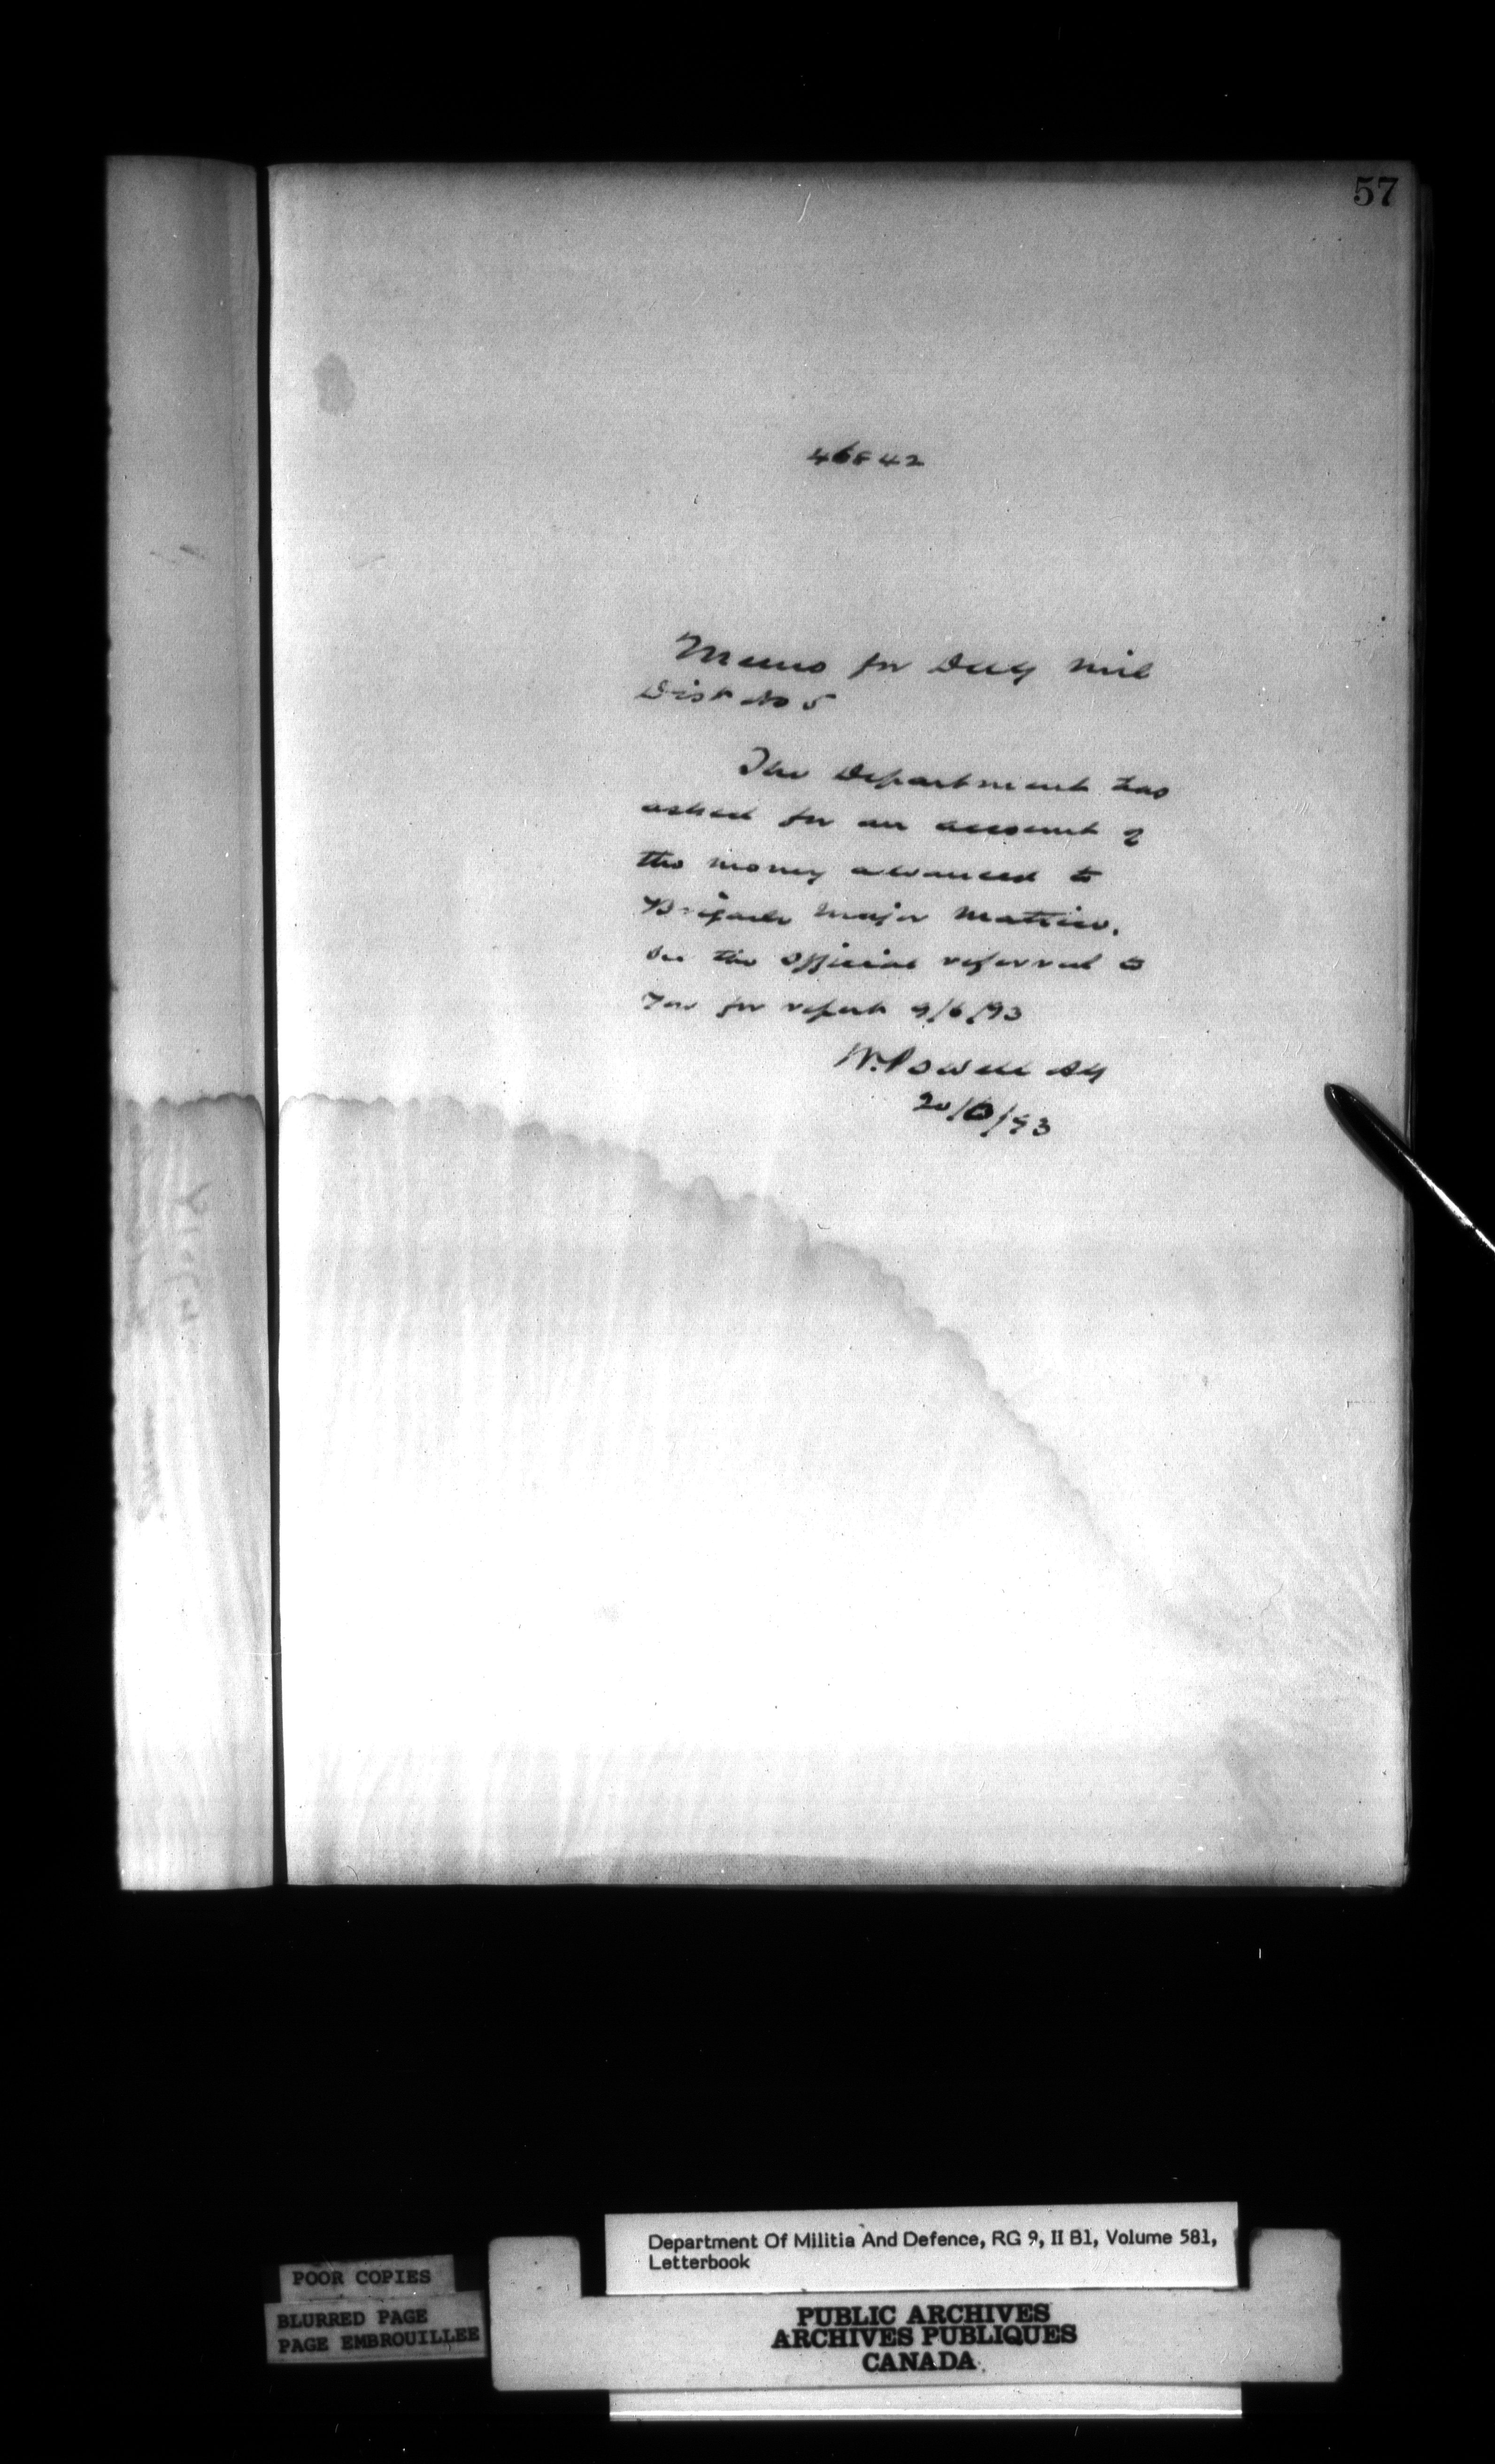 57
46842
Memo for DAG Mil
Dist No 5
The Department has
asked for an account of
the money advanced to
Brigade Major
the official referred to
You for report 9/6/93
W. Powell AG
Department Of Militia And Defence, RG 9, II B1, Volume 581,
Letterbook
POOR COPIES
BLURRED PAGE
PAGE EMBROUILLEE
PUBLIC ARCHIVES
ARCHIVES PUBLIQUES
CANADA